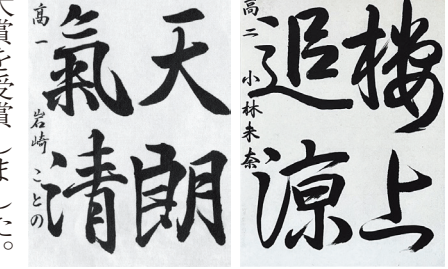 楼上
追涼
高二 小林未奈
天朗
氣清
高一 岩崎ことの
賞を受賞しました。